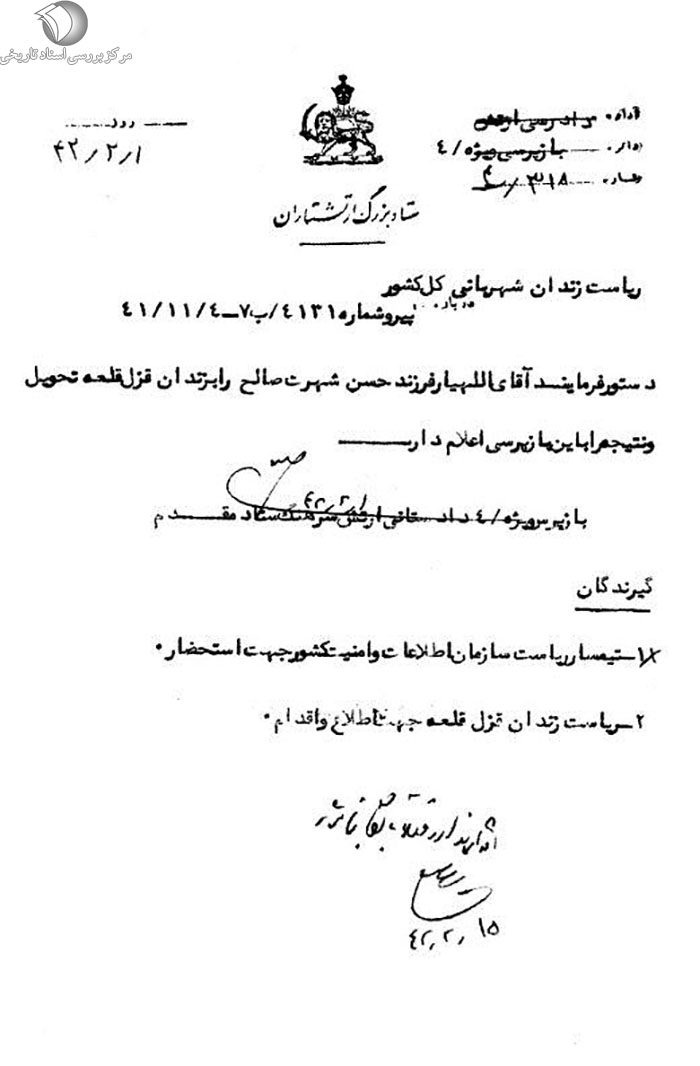 مرکز بررسی اسناد تاریخی
اداره دادرسی ارتش
دایره بازپرسی ویژه/ ۴
شماره ۳۱۸/
۴۲/۲/۱
ستاد بزرگ ارتشتاران
ریاست زندان شهربانی کل کشور
درباره
پیروشماره ۴۱۳۱/ب۷ــ۴۱/۱۱/۴
دستورفرمایند آقای اللهیارفرزند حسن شهرت صالح رابزندان قزل قلعه تحویل
ونتیجه رابااین بازپرسی اعلام دارند
۴۲/۲/۱
بازپرس ویژه/ ۴ دادستانی ارتش سرهنگ ستاد مقدم
گیرندگان
۱ـ تیمسار ریاست سازمان اطلاعات وامنیت کشور جهت استحضار.
۲ـ ریاست زندان قزل قلعه جهت اطلاع واقدام.
۴۲/۲/۱۵